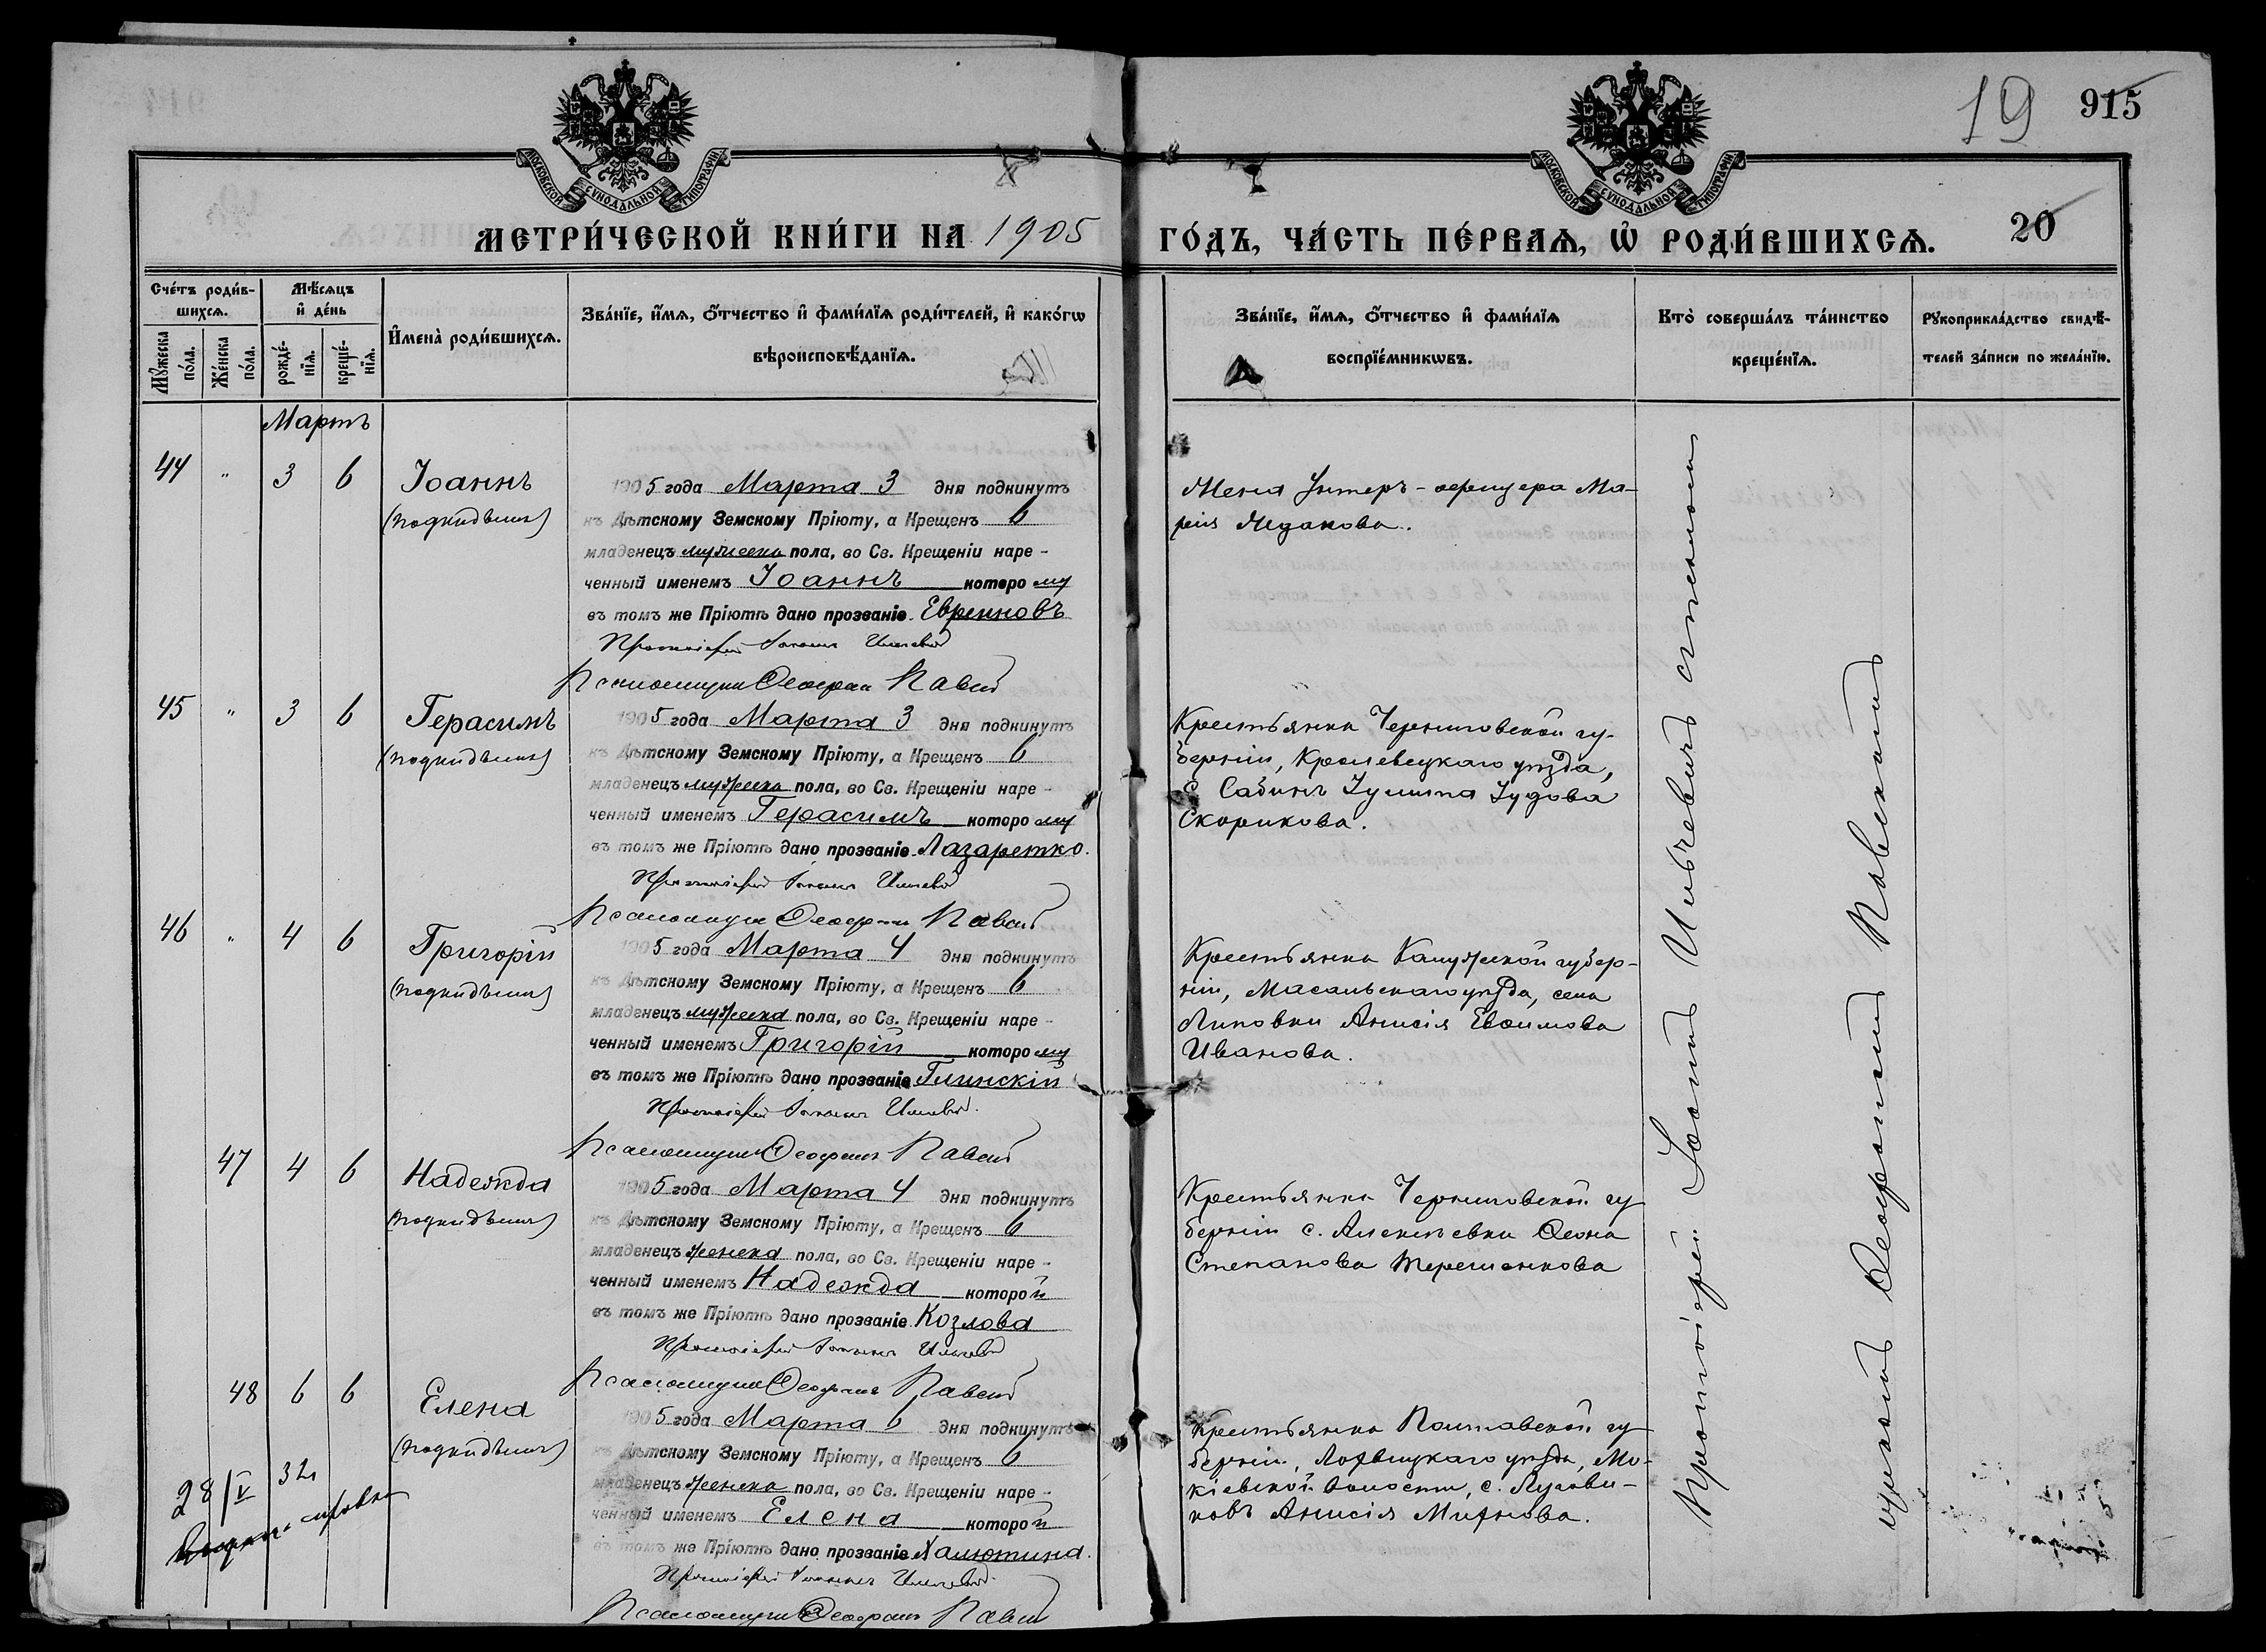 19 915
МОСКОВСКОЙ СѴНОДАЛЬНОЙ ТИПОГРАФІИ
МОСКОВСКОЙ СѴНОДАЛЬНОЙ ТИПОГРАФІИ
МЕТРИ́ЧЕСКОЙ КНИ́ГИ НА 1905 ГО́ДЪ, ЧА́СТЬ ПЕ́РВАѦ, Ѡ҆ РОДИ́ВШИХСѦ. 20
Сче́тъ роди́в-
шихсѧ.
Мꙋ́жеска по́ла.
Же́нска по́ла.
Мѣ́сѧцъ
и҆ де́нь
рожде́-
нїѧ.
креще́-
нїѧ.
И҆мена̀ роди́вшихсѧ.
Зва́нїе, и҆́мѧ, ѻ҆́тчество и҆ фами́лїѧ роди́телей, и҆ како́гѡ
вѣроисповѣ́данїѧ.
Зва́нїе, и҆́мѧ, ѻ҆́тчество и҆ фами́лїѧ
воспрїе́мникѡвъ.
Кто̀ соверша́лъ та́инство
креще́нїѧ.
Рꙋкоприкла́дство свидѣ́-
телей за́писи по жела́нїю.
Мартъ
44 " 3 6
Іоаннъ
(подкидышъ)
1905 года Марта 3 дня подкинутъ
къ Дѣтскому Земскому Пріюту, а Крещенъ 6
младенецъ мужеска пола, во Св. Крещеніи наре-
ченный именемъ Іоаннъ которому
въ томъ же Пріютѣ дано прозваніе Евреиновъ
Протоіерей Іоаннъ
Псаломщикъ Ѳеофанъ
Жена Унтеръ-офицера Ма-
рія
45 " 3 6
Герасимъ
(подкидышъ)
1905 года Марта 3 дня подкинутъ
къ Дѣтскому Земскому Пріюту, а Крещенъ 6
младенецъ мужеска пола, во Св. Крещеніи наре-
ченный именемъ Герасимъ которому
въ томъ же Пріютѣ дано прозваніе Лазаретко.
Протоіерей Іоаннъ
Псаломщикъ Ѳеофанъ
Крестьянка Черниговской гу-
берніи, Кролевецкаго уѣзда,
с. Іулита Іудова
Скорикова.
46 " 4 6
Григорій
(подкидышъ)
1905 года Марта 4 дня подкинутъ
къ Дѣтскому Земскому Пріюту, а Крещенъ 6
младенецъ мужеска пола, во Св. Крещеніи наре-
ченный именемъ Григорій которому
въ томъ же Пріютѣ дано прозваніе Глинскій
Протоіерей Іоаннъ
Псаломщикъ Ѳеофанъ
Крестьянка Калужской губер-
ніи, Масальскаго уѣзда, села
Липовки Анисія Евѳимова
Иванова.
47 4 6
Надежда
(подкидышъ)
1905 года Марта 4 дня подкинутъ
къ Дѣтскому Земскому Пріюту, а Крещенъ 6
младенецъ женска пола, во Св. Крещеніи наре-
ченный именемъ Надежда которой
въ томъ же Пріютѣ дано прозваніе Козлова
Протоіерей Іоаннъ
Псаломщикъ Ѳеофанъ
Крестьянка Черниговской гу-
берніи с. Алексѣевки
Степанова Терешенкова
48 6 6
Елена
(подкидышъ)
1905 года Марта 6 дня подкинутъ
къ Дѣтскому Земскому Пріюту, а Крещенъ 6
младенецъ женска пола, во Св. Крещеніи наре-
ченный именемъ Елена которой
въ томъ же Пріютѣ дано прозваніе Халютина.
Протоіерей Іоаннъ
Псаломщикъ Ѳеофанъ
Крестьянка Полтавской гу-
берніи, Лохвицкаго уѣзда, Мо-
кіевской волости, с.
Анисія
28/V 32
Протоіерей Іоаннъ Ильчевичъ съ
Ѳеофаномъ Павскимъ